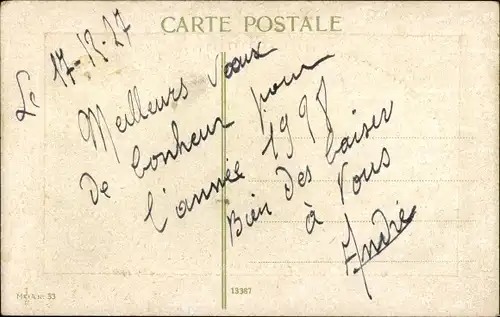 CARTE POSTALE
Le 17-12-27
Meilleurs Voeux
De bonheur pour
l'année 1928
Bien des baiser
à Vous
André
13387